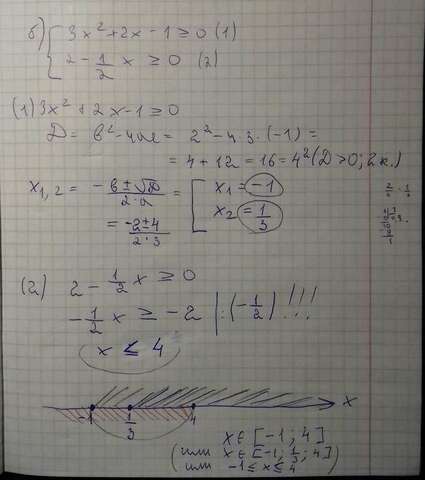 б) { 3x² + 2x - 1 ≥ 0 (1)
2 - 1/2 x ≥ 0 (2)
(1) 3x² + 2x - 1 ≥ 0
D = b² - 4ac = 2² - 4·3·(-1) =
= 4 + 12 = 16 = 4² (D > 0; 2 к.)
x1,2 = -b ± √D / 2·a = [ x1 = -1
= -2 ± 4 / 2·3 x2 = 1/3
(2) 2 - 1/2 x ≥ 0
-1/2 x ≥ -2 | : (-1/2) !!!
x ≤ 4
-1 1/3 4 x
x ∈ [-1; 4]
(или x ∈ [-1; 1/3; 4]
(или -1 ≤ x ≤ 4